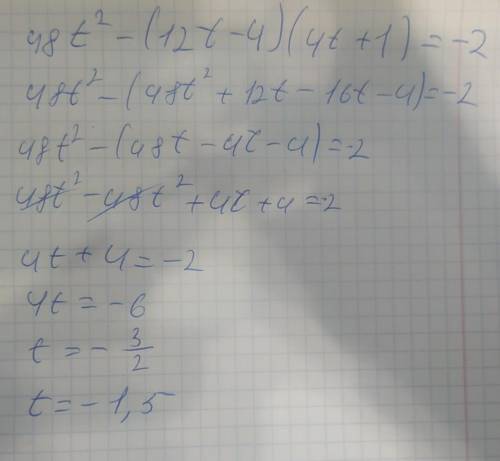 48t² - (12t - 4)(4t + 1) = -2
48t² - (48t² + 12t - 16t - 4) = -2
48t² - (48t - 4t - 4) = -2
48t² - 48t² + 4t + 4 = -2
4t + 4 = -2
4t = -6
t = - 3/2
t = -1,5